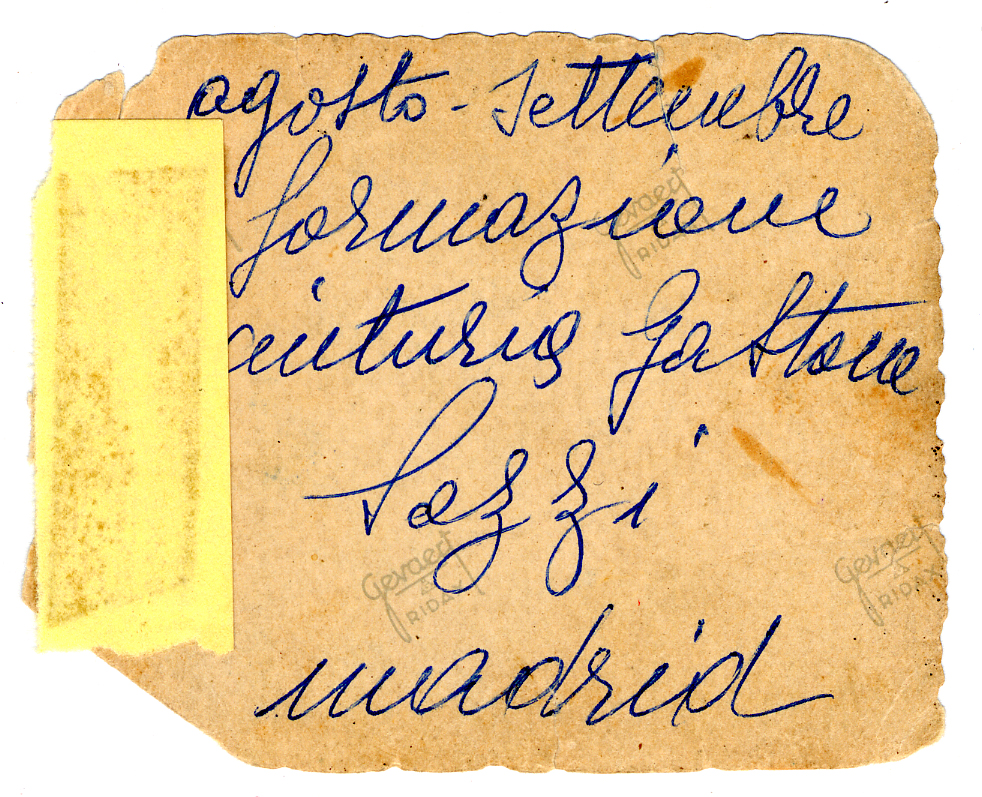 agosto - settembre
formazione
Gevaert
RIDAX
centuria Gastone
Sozzi
Gevaert
RIDAX
Gevaert
RIDAX
madrid